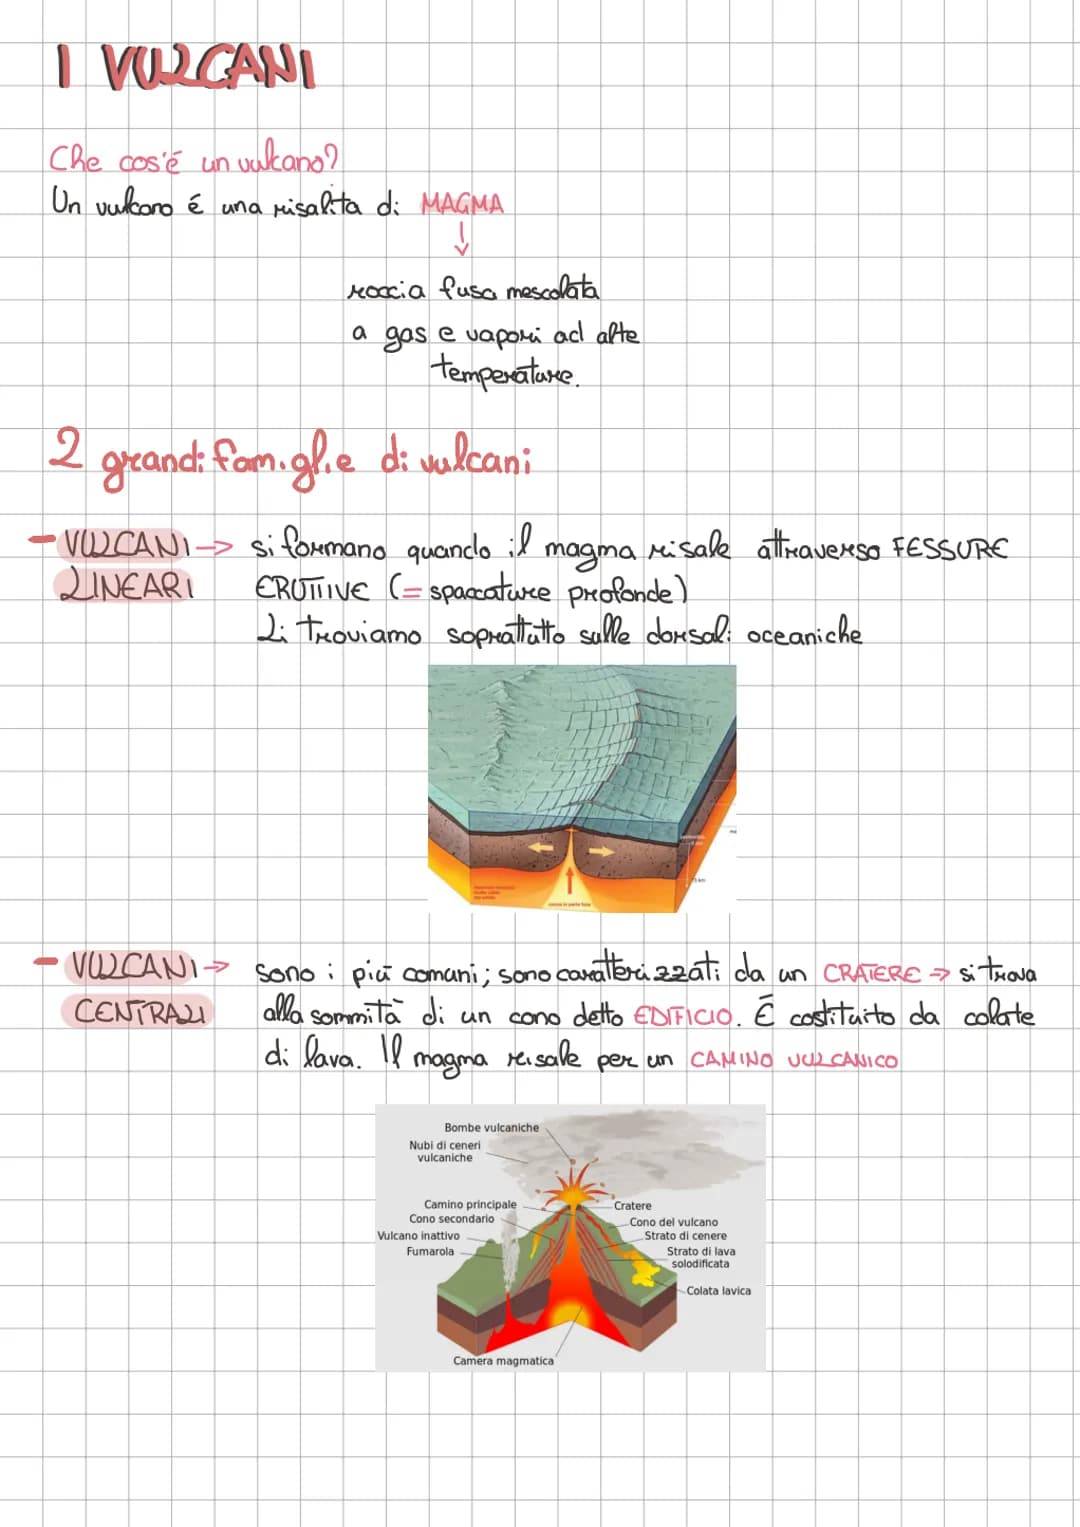 I VULCANI
Che cos'é un vulcano?
Un vulcano é una risalita di MAGMA
roccia fusa mescolata
a gas e vapori ad alte
temperature.
2 grandi famiglie di vulcani
- VULCANI → si formano quando il magma risale attraverso FESSURE
LINEARI ERUTTIVE (= spaccature profonde)
Li troviamo soprattutto sulle dorsali oceaniche
- VULCANI → sono i più comuni; sono caratterizzati da un CRATERE → si trova
CENTRALI alla sommità di un cono detto EDIFICIO. É costituito da colate
di lava. Il magma risale per un CAMINO VULCANICO
Bombe vulcaniche
Nubi di ceneri
vulcaniche
Camino principale
Cono secondario
Vulcano inattivo
Fumarola
Cratere
Cono del vulcano
Strato di cenere
Strato di lava
solodificata
Colata lavica
Camera magmatica